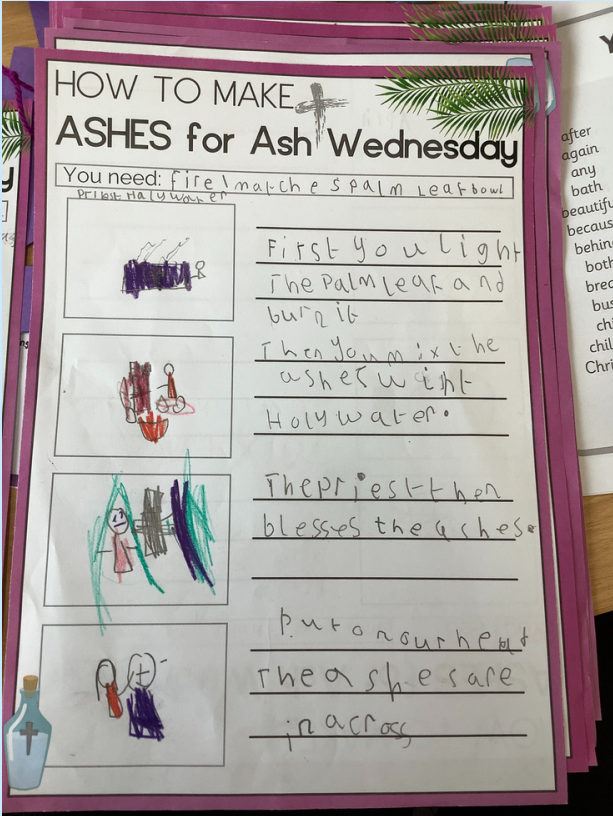 HOW TO MAKE
ASHES for Ash Wednesday
You need: fire/matches palm leaf bowl
Pribst Haly water
First you light
The Palm Leaf and
burn it
Then you mix the
ashet wight
Holy water.
The priest then
blesses the ashes.
Put on our head
The ashes are
in a cross
after
again
any
bath
beautifu
becaus
behin
both
brea
bus
chi
chil
Chri